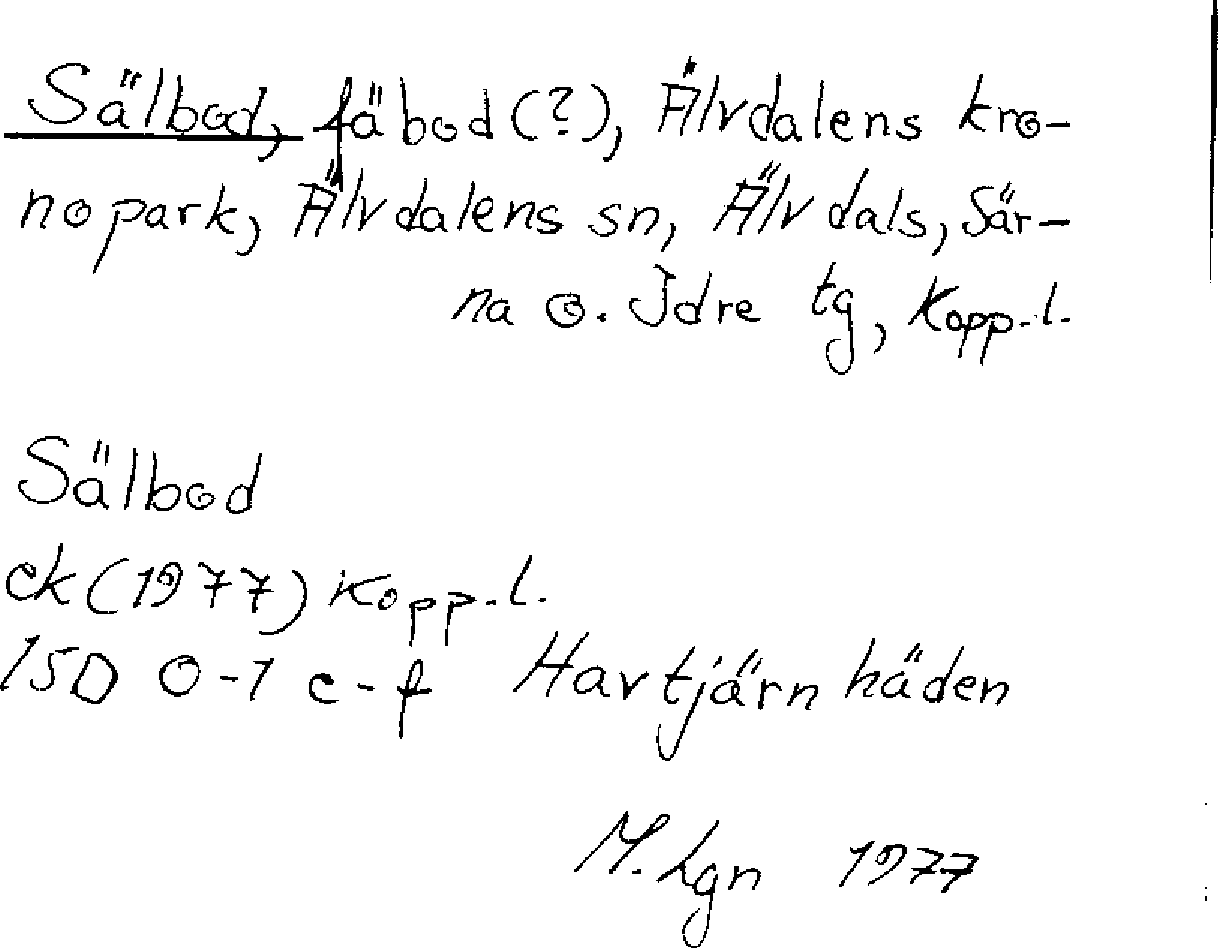 Sälbod, fäbod (?), Älvdalens kro-
nopark, Älvdalens sn, Älvdals, Sär-
na o. Idre tg, Kopp. l.
Sälbod
ek (1977) Kopp. l.
15D 0-1 e-f Havtjärnhäden
M. Lgn 1977